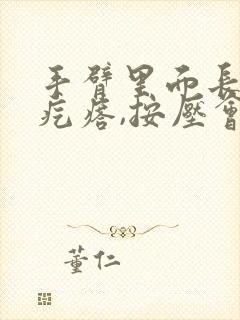 手臂里而長
疙瘩,按壓會
董仁